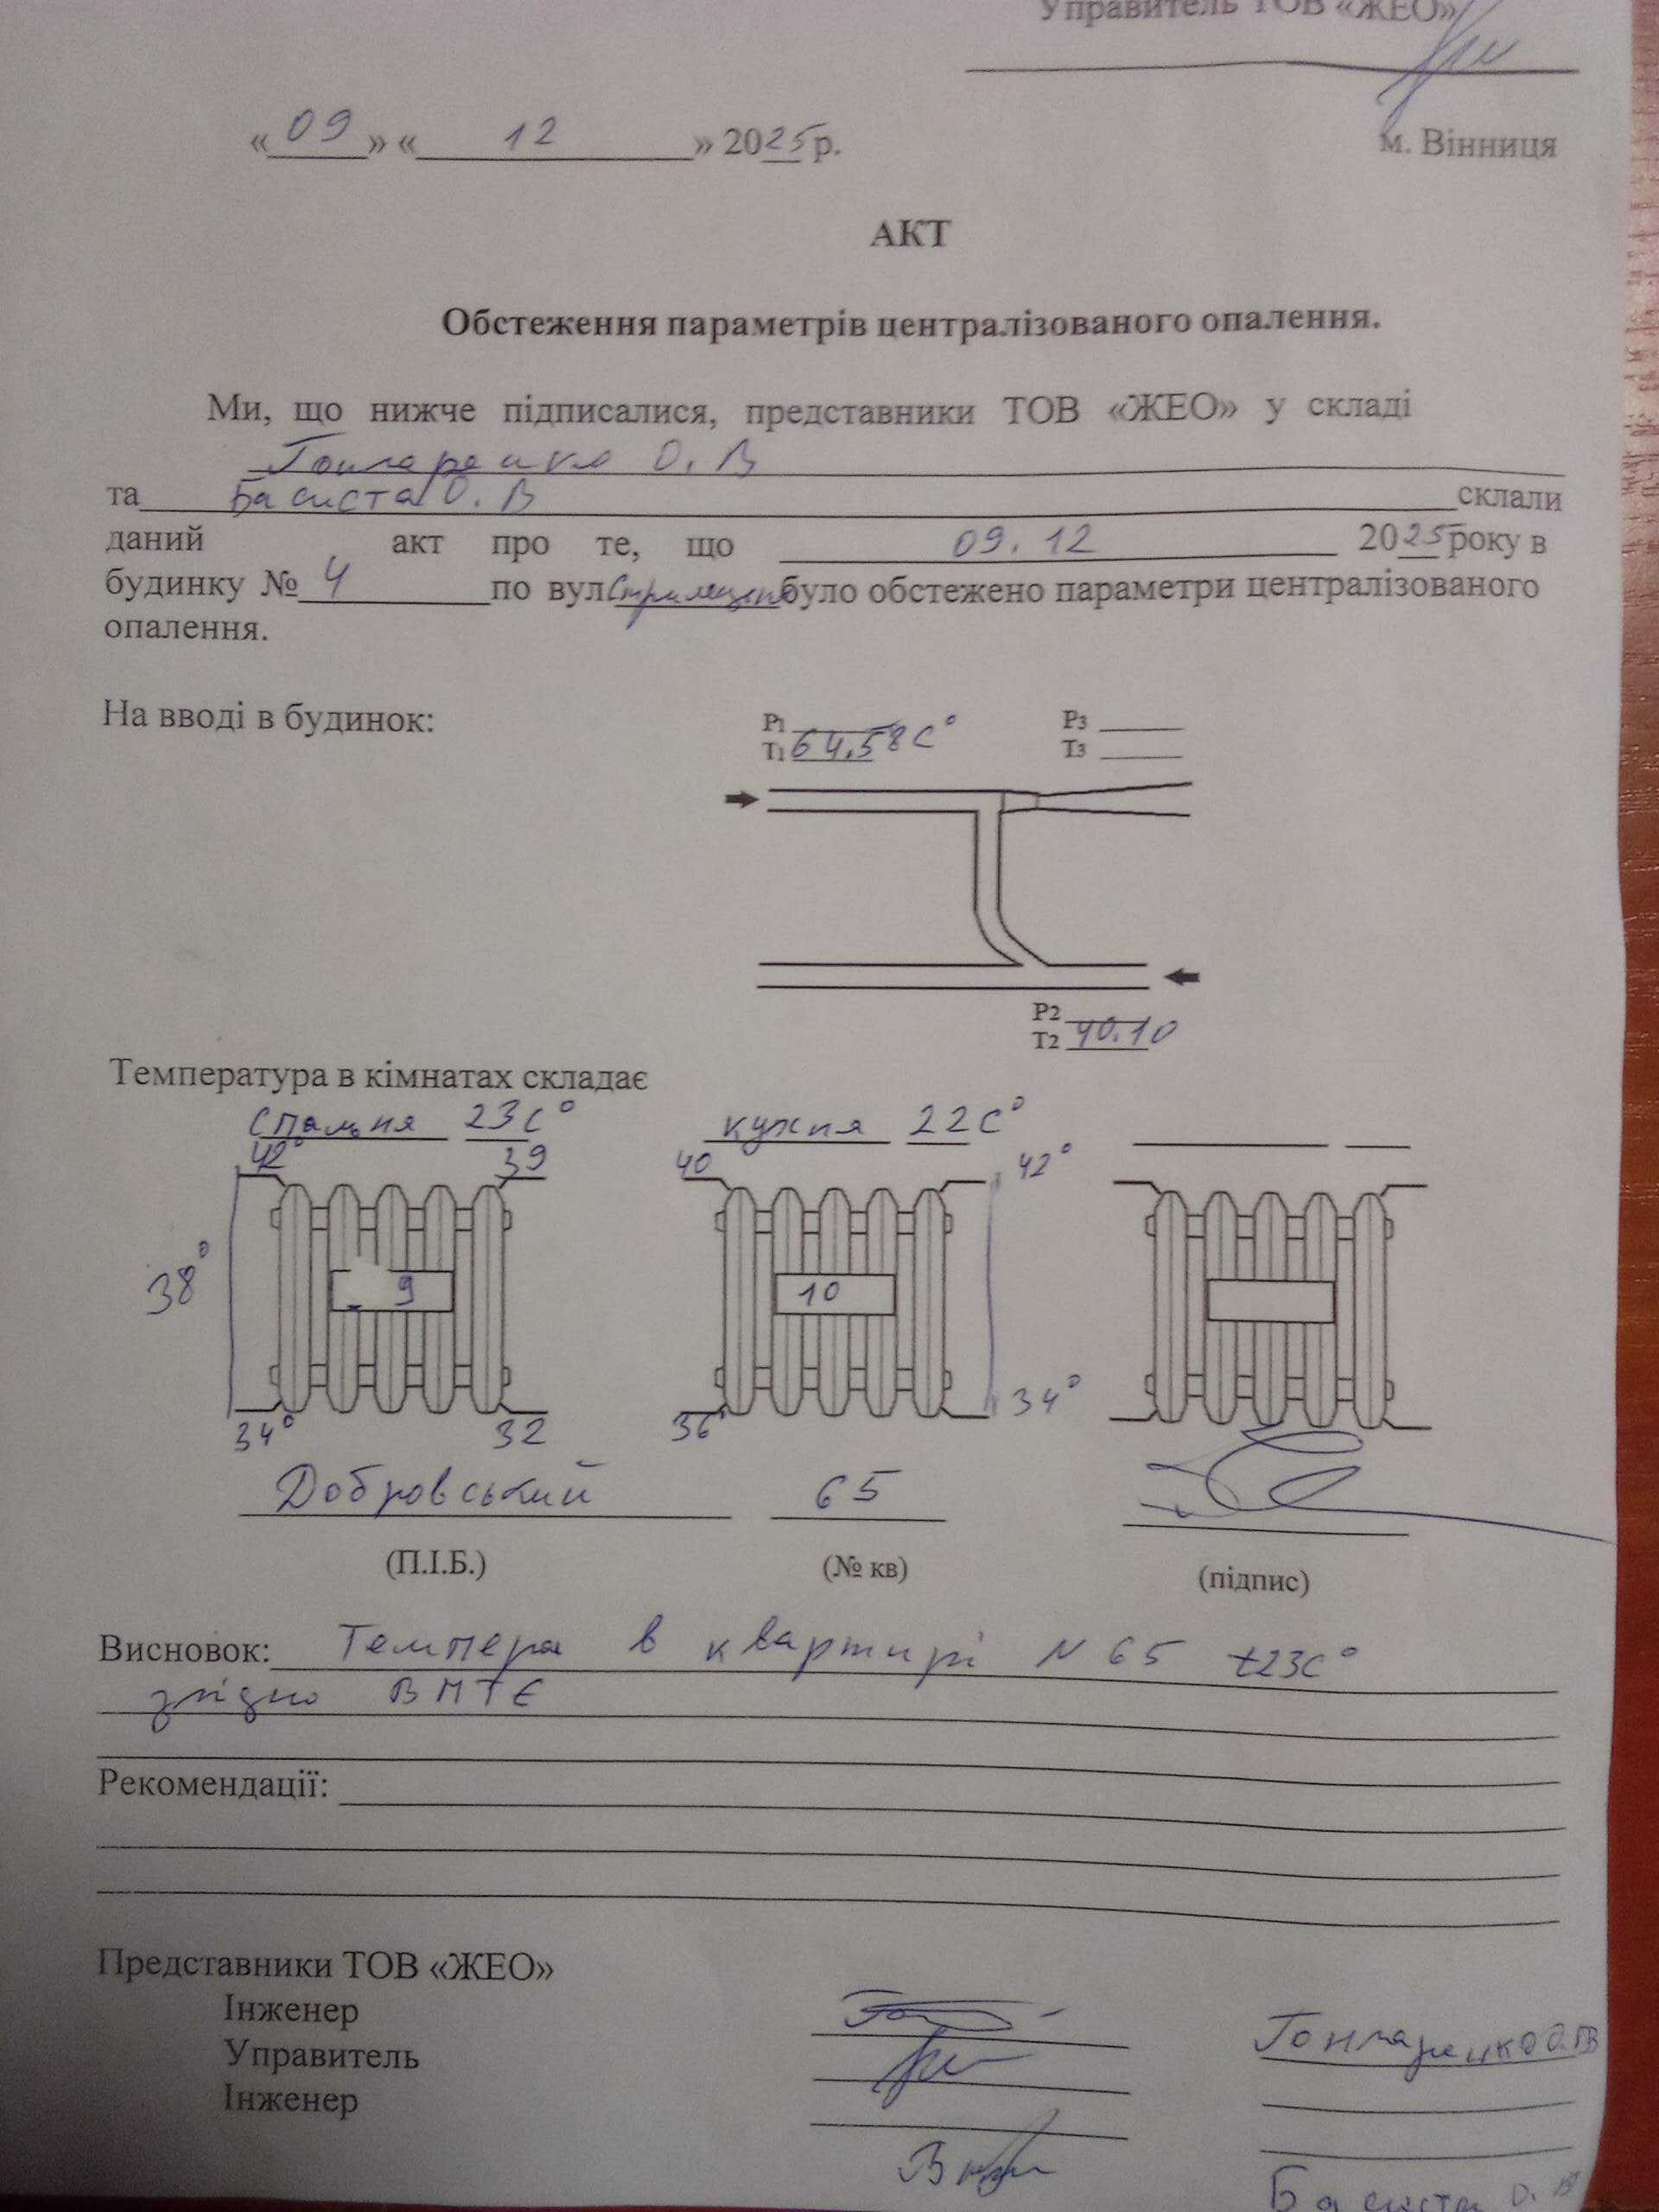 Управитель ТОВ «ЖЕО»
«09» «12» 2025р.
м. Вінниця
АКТ
Обстеження параметрів централізованого опалення.
Ми, що нижче підписалися, представники ТОВ «ЖЕО» у складі
Гончаренко О. В
та Басиста О. В склали
даний акт про те, що 09.12 2025 року в
будинку № 4 по вул. було обстежено параметри централізованого
опалення.
На вводі в будинок:
P1 P3
T1 64.58 C° T3
P2
T2 40.10
Температура в кімнатах складає
Спальня 23C° кухня 22C°
42° 39 40 42°
38°
9 10
34° 32 36° 34°
Добровський 65
(П.І.Б.) (№ кв) (підпис)
Висновок: Темпера в квартирі N 65 t23C°
згідно ВМТЕ
Рекомендації:
Представники ТОВ «ЖЕО»
Інженер Гончаренко О.В
Управитель
Інженер
Басиста О. В